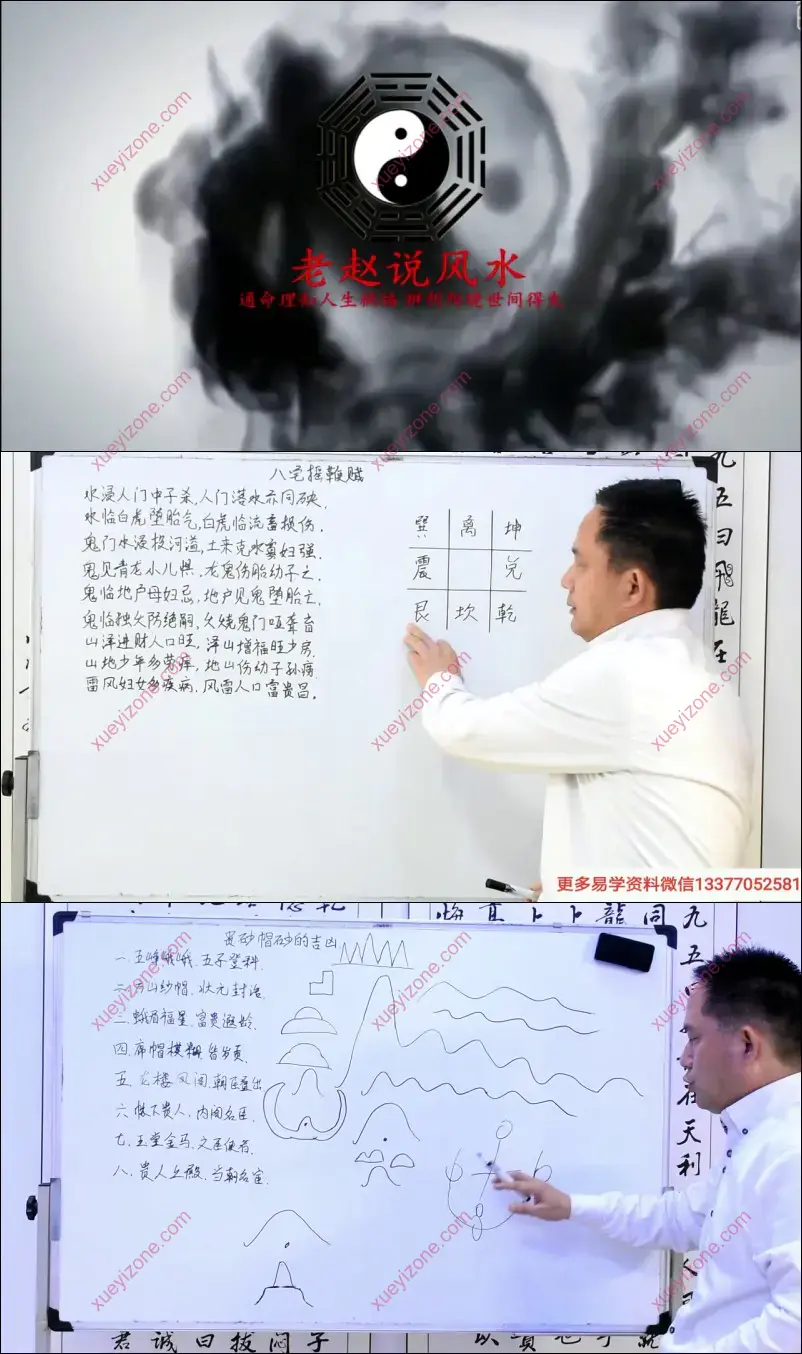 xueyizone.com
xueyizone.com
xueyizone.com
老赵说风水
xueyizone.com
xueyizone.com
xueyizone.com
八宅摇鞭赋
水浸人门中子杀,人门落水亦同砄
水临白虎堕胎气,白虎临流畜损伤.
鬼门水浸投河溢,土来克水寡妇强.
鬼见青龙小儿惧.龙鬼伤胎幼子亡.
鬼临地户母妇忌,地户见鬼堕胎亡.
鬼临独父防绝嗣,父娆鬼门哑聋盲
山泽进财人口旺,泽山增福旺少房.
山地少年多劳库,地山伤幼子孙痨
雷风妇女多疾病.风雷人口富贵昌.
巽 离 坤
震 兑
艮 坎 乾
九五曰飛龍在
xueyizone.com
xueyizone.com
xueyizone.com
更多易学资料微信13377052581
龍同
九五
贵砂帽砂的吉凶
一.五峰峨峨.五子登科.
二.方山纱帽.状元封诰.
二.蛾眉福星.富贵遐龄.
四.席帽模糊
五 龙楼凤阁.朝臣
六 帐下贵人.内阁名臣.
七.玉堂金马.文臣
八.贵人上殿.当朝名宦.
在天利
xueyizone.com
xueyizone.com
xueyizone.com
xueyizone.com
xueyizone.com
xueyizone.com
君誠曰拔悶子